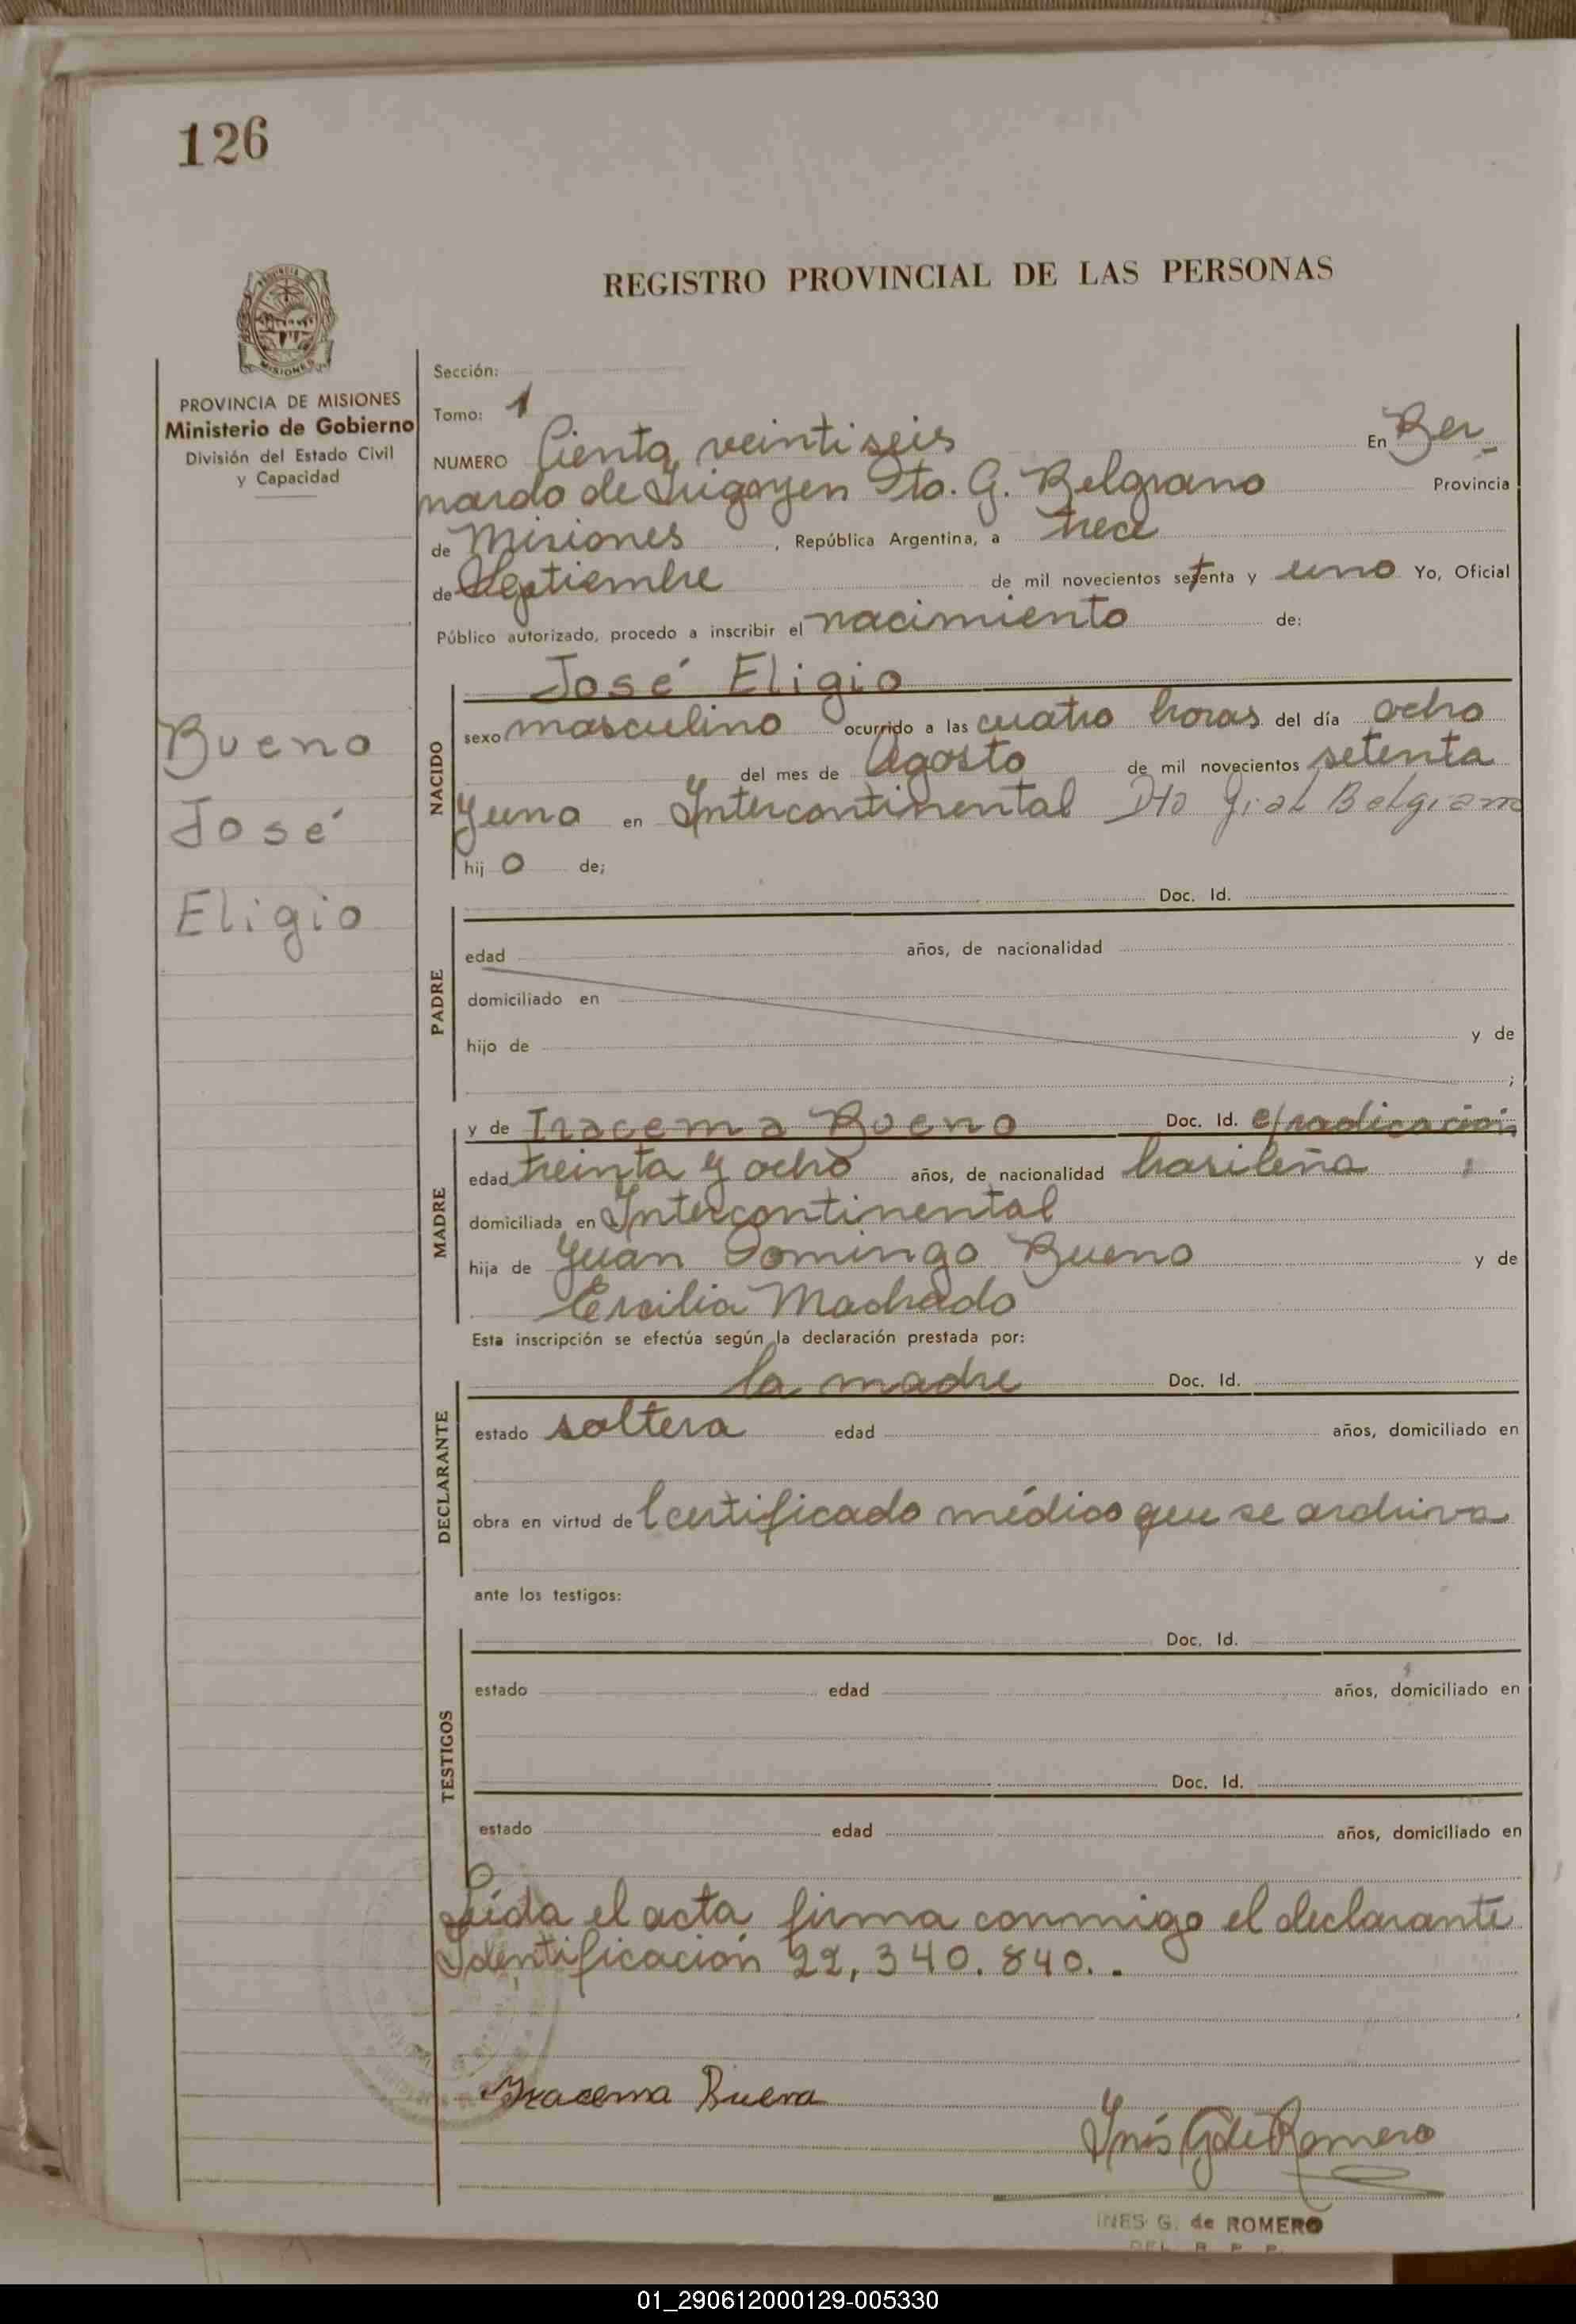 126
REGISTRO PROVINCIAL DE LAS PERSONAS
MISIONES
PROVINCIA DE MISIONES
Ministerio de Gobierno
División del Estado Civil
y Capacidad
Sección:
Tomo: 1
NUMERO Ciento veintiseis En Ber_
nardo de Irigoyen Dto. G. Belgrano Provincia
de Misiones, República Argentina, a trece
de Septiembre de mil novecientos setenta y uno Yo, Oficial
Público autorizado, procedo a inscribir el nacimiento de:
José Eligio
NACIDO
sexo masculino ocurrido a las cuatro horas del día ocho
del mes de Agosto de mil novecientos setenta
y uno en Intercontinental Dto Gral Belgrano
hij o de;
Bueno
José
Eligio
Doc. Id.
PADRE
edad años, de nacionalidad
domiciliado en
hijo de y de
;
MADRE
y de Iracema Bueno Doc. Id. c/radicación
edad treinta y ocho años, de nacionalidad brasileña
domiciliada en Intercontinental
hija de Juan Domingo Bueno y de
Ercilia Machado
Esta inscripción se efectúa según la declaración prestada por:
la madre Doc. Id.
DECLARANTE
estado soltera edad años, domiciliado en
obra en virtud de l certificado médico que se archiva
ante los testigos:
Doc. Id.
TESTIGOS
estado edad años, domiciliado en
Doc. Id.
estado edad años, domiciliado en
Leída el acta firma conmigo el declarante
Identificación 22,340.840..
Iracema Buena
Inés G de Romero
INES G. de ROMERO
DEL. R. P. P.
01_290612000129-005330